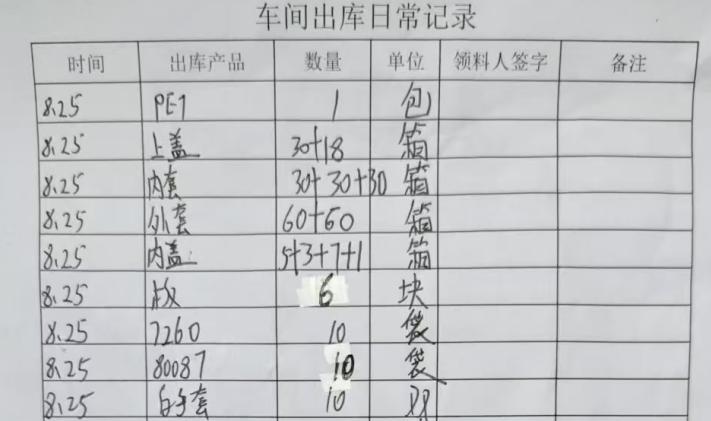 车间出库日常记录
时间 出库产品 数量 单位 领料人签字 备注
8.25 PET 1 包
8.25 上盖 30+18 箱
8.25 内套 30+30+30 箱
8.25 外套 60+60 箱
8.25 内盖 5+3+7+1 箱
8.25 板 6 块
8.25 7260 10 袋
8.25 80087 10 袋
8.25 白手套 10 双